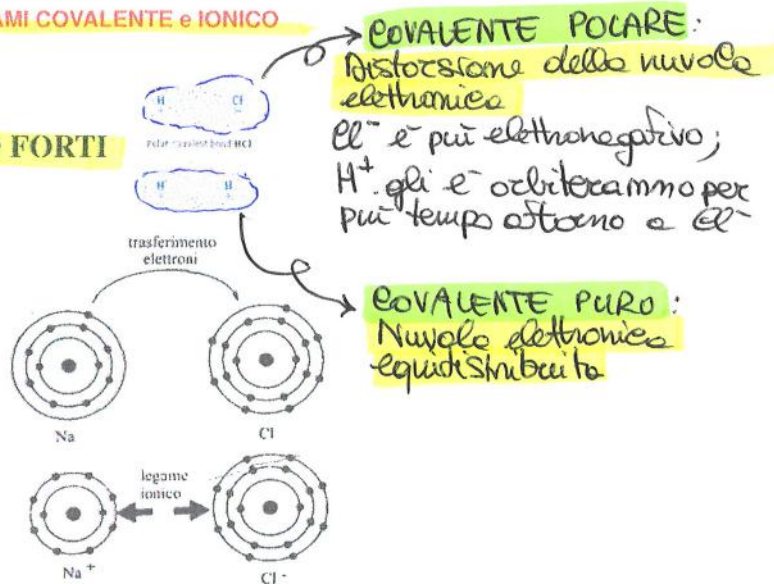 AMI COVALENTE e IONICO
FORTI
H Cl
polar covalent bond HCl
H H
COVALENTE POLARE:
Distorsione della nuvola
elettronica
Cl⁻ è più elettronegativo;
H⁺ gli e⁻ orbiteranno per
più tempo attorno a Cl⁻
COVALENTE PURO:
Nuvola elettronica
equidistribuita
trasferimento
elettroni
Na
Cl
legame
ionico
Na⁺
Cl⁻